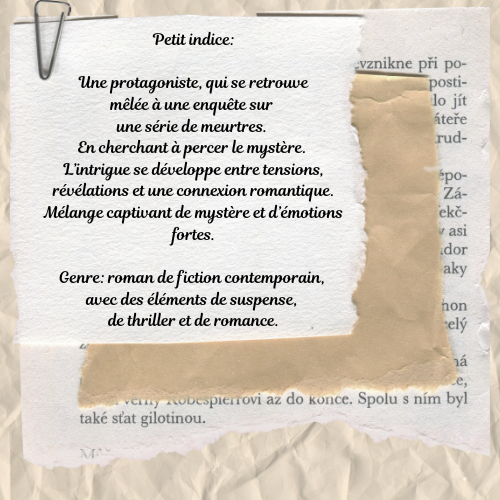 Petit indice:
Une protagoniste, qui se retrouve
mêlée à une enquête sur
une série de meurtres.
En cherchant à percer le mystère.
L'intrigue se développe entre tensions,
révélations et une connexion romantique.
Mélange captivant de mystère et d'émotions
fortes.
Genre: roman de fiction contemporain,
avec des éléments de suspense,
de thriller et de romance.
vznikne při po-
posti-
lo jít
rud-
Zá-
asi
aky
Robespierrovi až do konce. Spolu s ním byl
také sťat gilotinou.